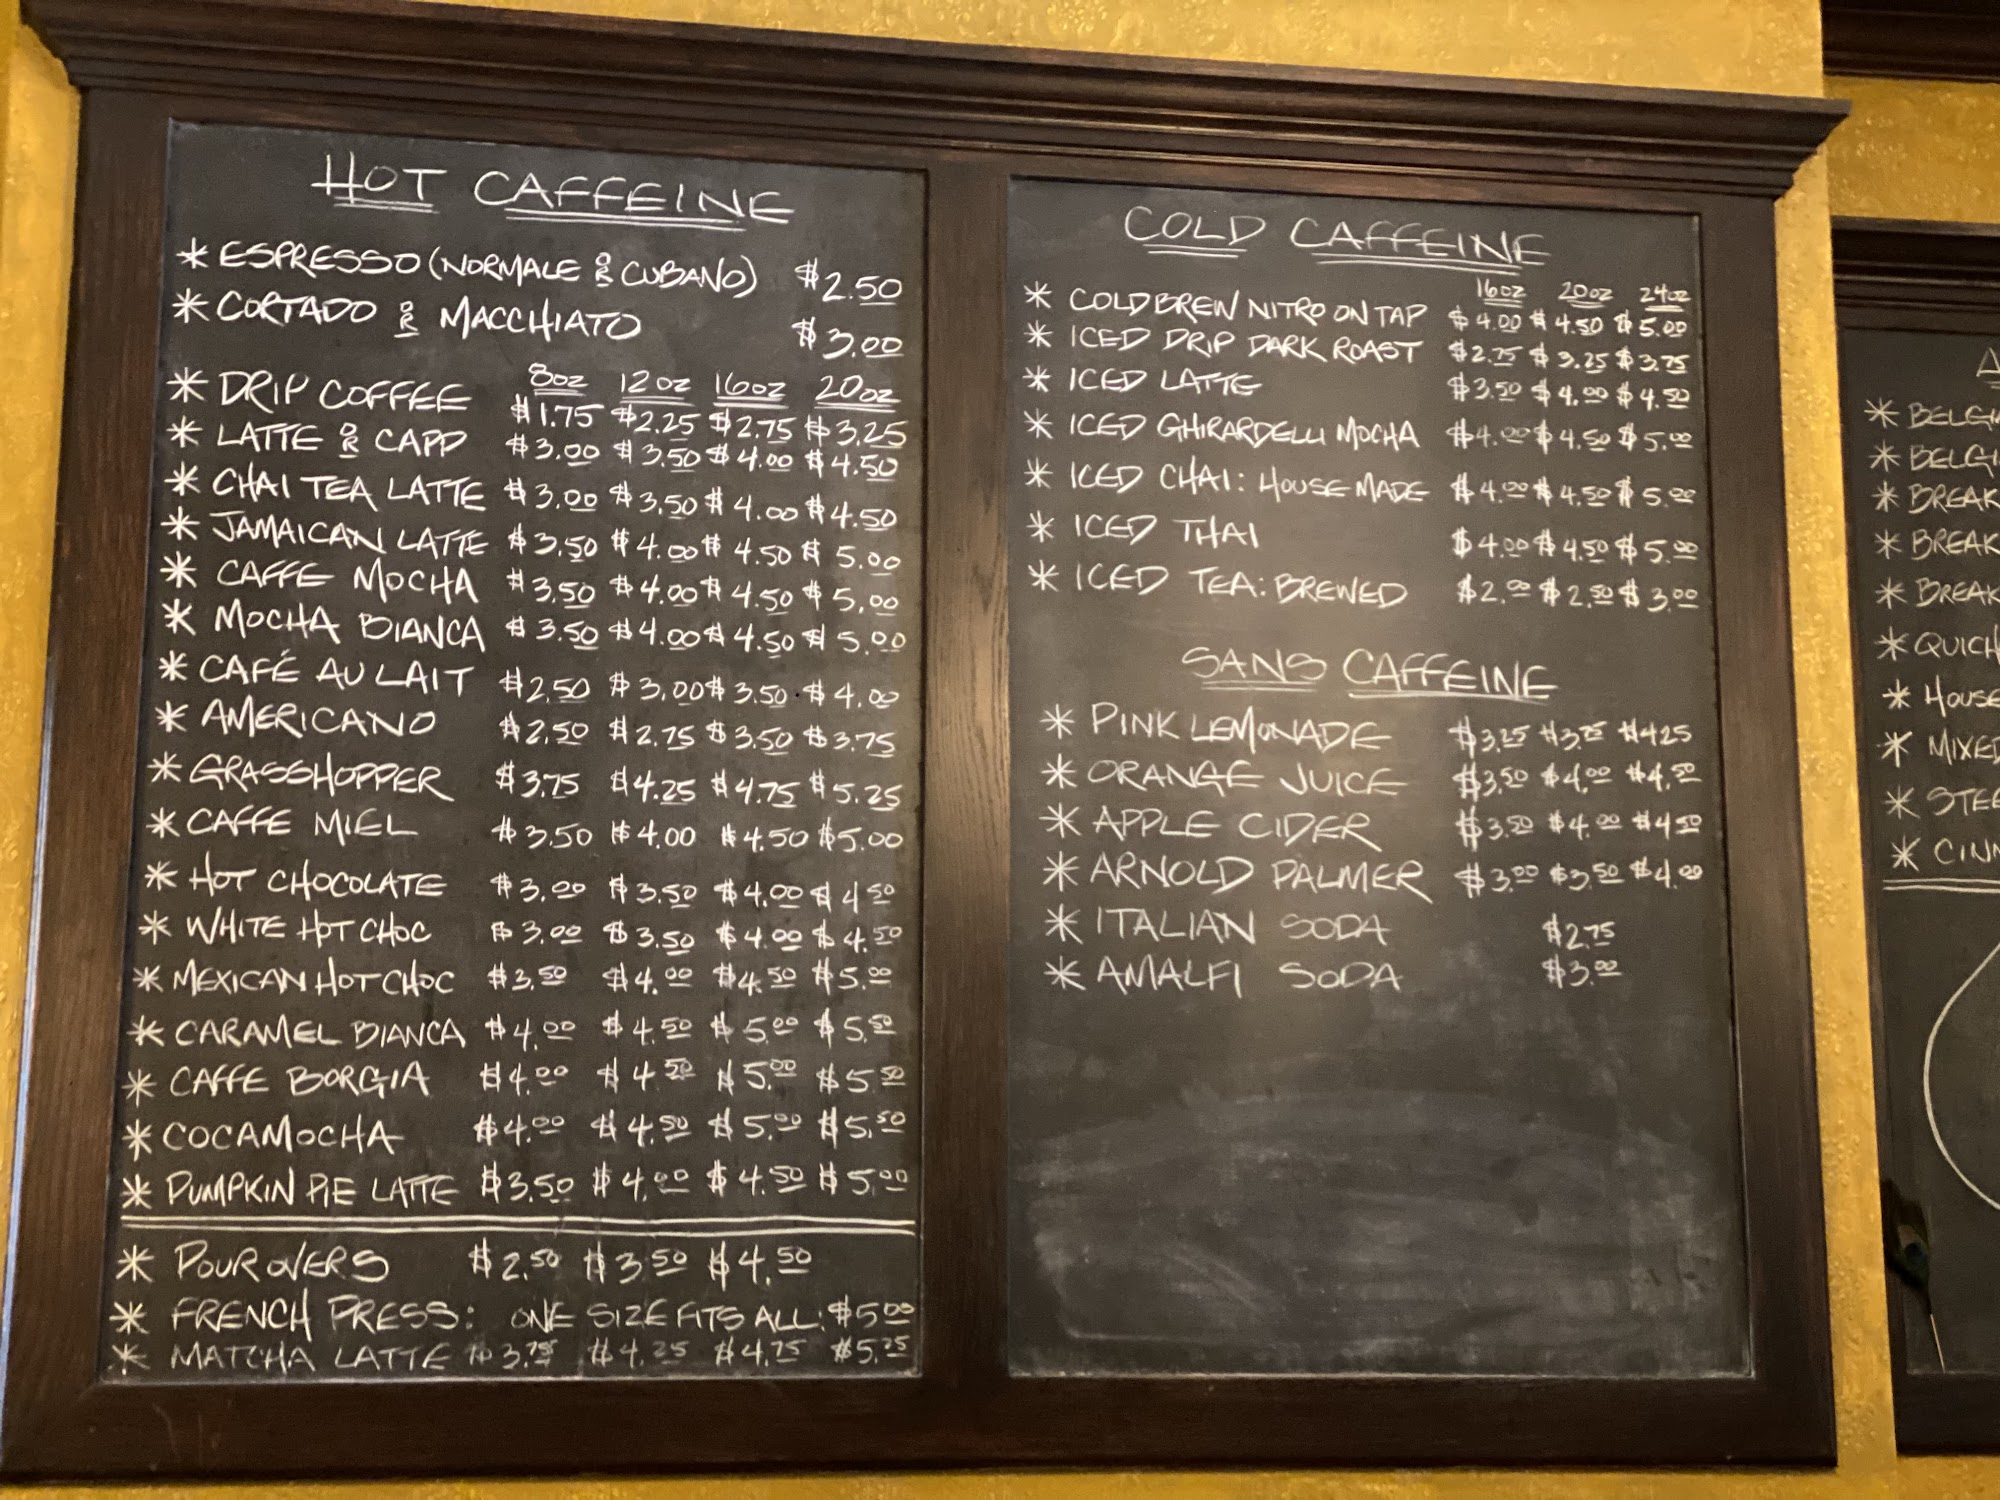 HOT CAFFEINE
* ESPRESSO (NORMALE OR CUBANO) $2.50
* CORTADO OR MACCHIATO $3.00
8oz 12oz 16oz 20oz
* DRIP COFFEE $1.75 $2.25 $2.75 $3.25
* LATTE OR CAPP $3.00 $3.50 $4.00 $4.50
* CHAI TEA LATTE $3.00 $3.50 $4.00 $4.50
* JAMAICAN LATTE $3.50 $4.00 $4.50 $5.00
* CAFFE MOCHA $3.50 $4.00 $4.50 $5.00
* MOCHA BIANCA $3.50 $4.00 $4.50 $5.00
* CAFÉ AU LAIT $2.50 $3.00 $3.50 $4.00
* AMERICANO $2.50 $2.75 $3.50 $3.75
* GRASSHOPPER $3.75 $4.25 $4.75 $5.25
* CAFFE MIEL $3.50 $4.00 $4.50 $5.00
* HOT CHOCOLATE $3.00 $3.50 $4.00 $4.50
* WHITE HOT CHOC $3.00 $3.50 $4.00 $4.50
* MEXICAN HOT CHOC $3.50 $4.00 $4.50 $5.00
* CARAMEL BIANCA $4.00 $4.50 $5.00 $5.50
* CAFFE BORGIA $4.00 $4.50 $5.00 $5.50
* COCAMOCHA $4.00 $4.50 $5.00 $5.50
* PUMPKIN PIE LATTE $3.50 $4.00 $4.50 $5.00
* POUR OVERS $2.50 $3.50 $4.50
* FRENCH PRESS: ONE SIZE FITS ALL: $5.00
* MATCHA LATTE $3.75 $4.25 $4.75 $5.25
COLD CAFFEINE
16oz 20oz 24oz
* COLDBREW NITRO ON TAP $4.00 $4.50 $5.00
* ICED DRIP DARK ROAST $2.75 $3.25 $3.75
* ICED LATTE $3.50 $4.00 $4.50
* ICED GHIRARDELLI MOCHA $4.00 $4.50 $5.00
* ICED CHAI: HOUSE MADE $4.00 $4.50 $5.00
* ICED THAI $4.00 $4.50 $5.00
* ICED TEA: BREWED $2.00 $2.50 $3.00
SANS CAFFEINE
* PINK LEMONADE $3.25 $3.75 $4.25
* ORANGE JUICE $3.50 $4.00 $4.50
* APPLE CIDER $3.50 $4.00 $4.50
* ARNOLD PALMER $3.00 $3.50 $4.00
* ITALIAN SODA $2.75
* AMALFI SODA $3.00
* BELGI
* BELGI
* BREAK
* BREAK
* BREAK
* QUICH
* HOUSE
* MIXED
* STEE
* CINN